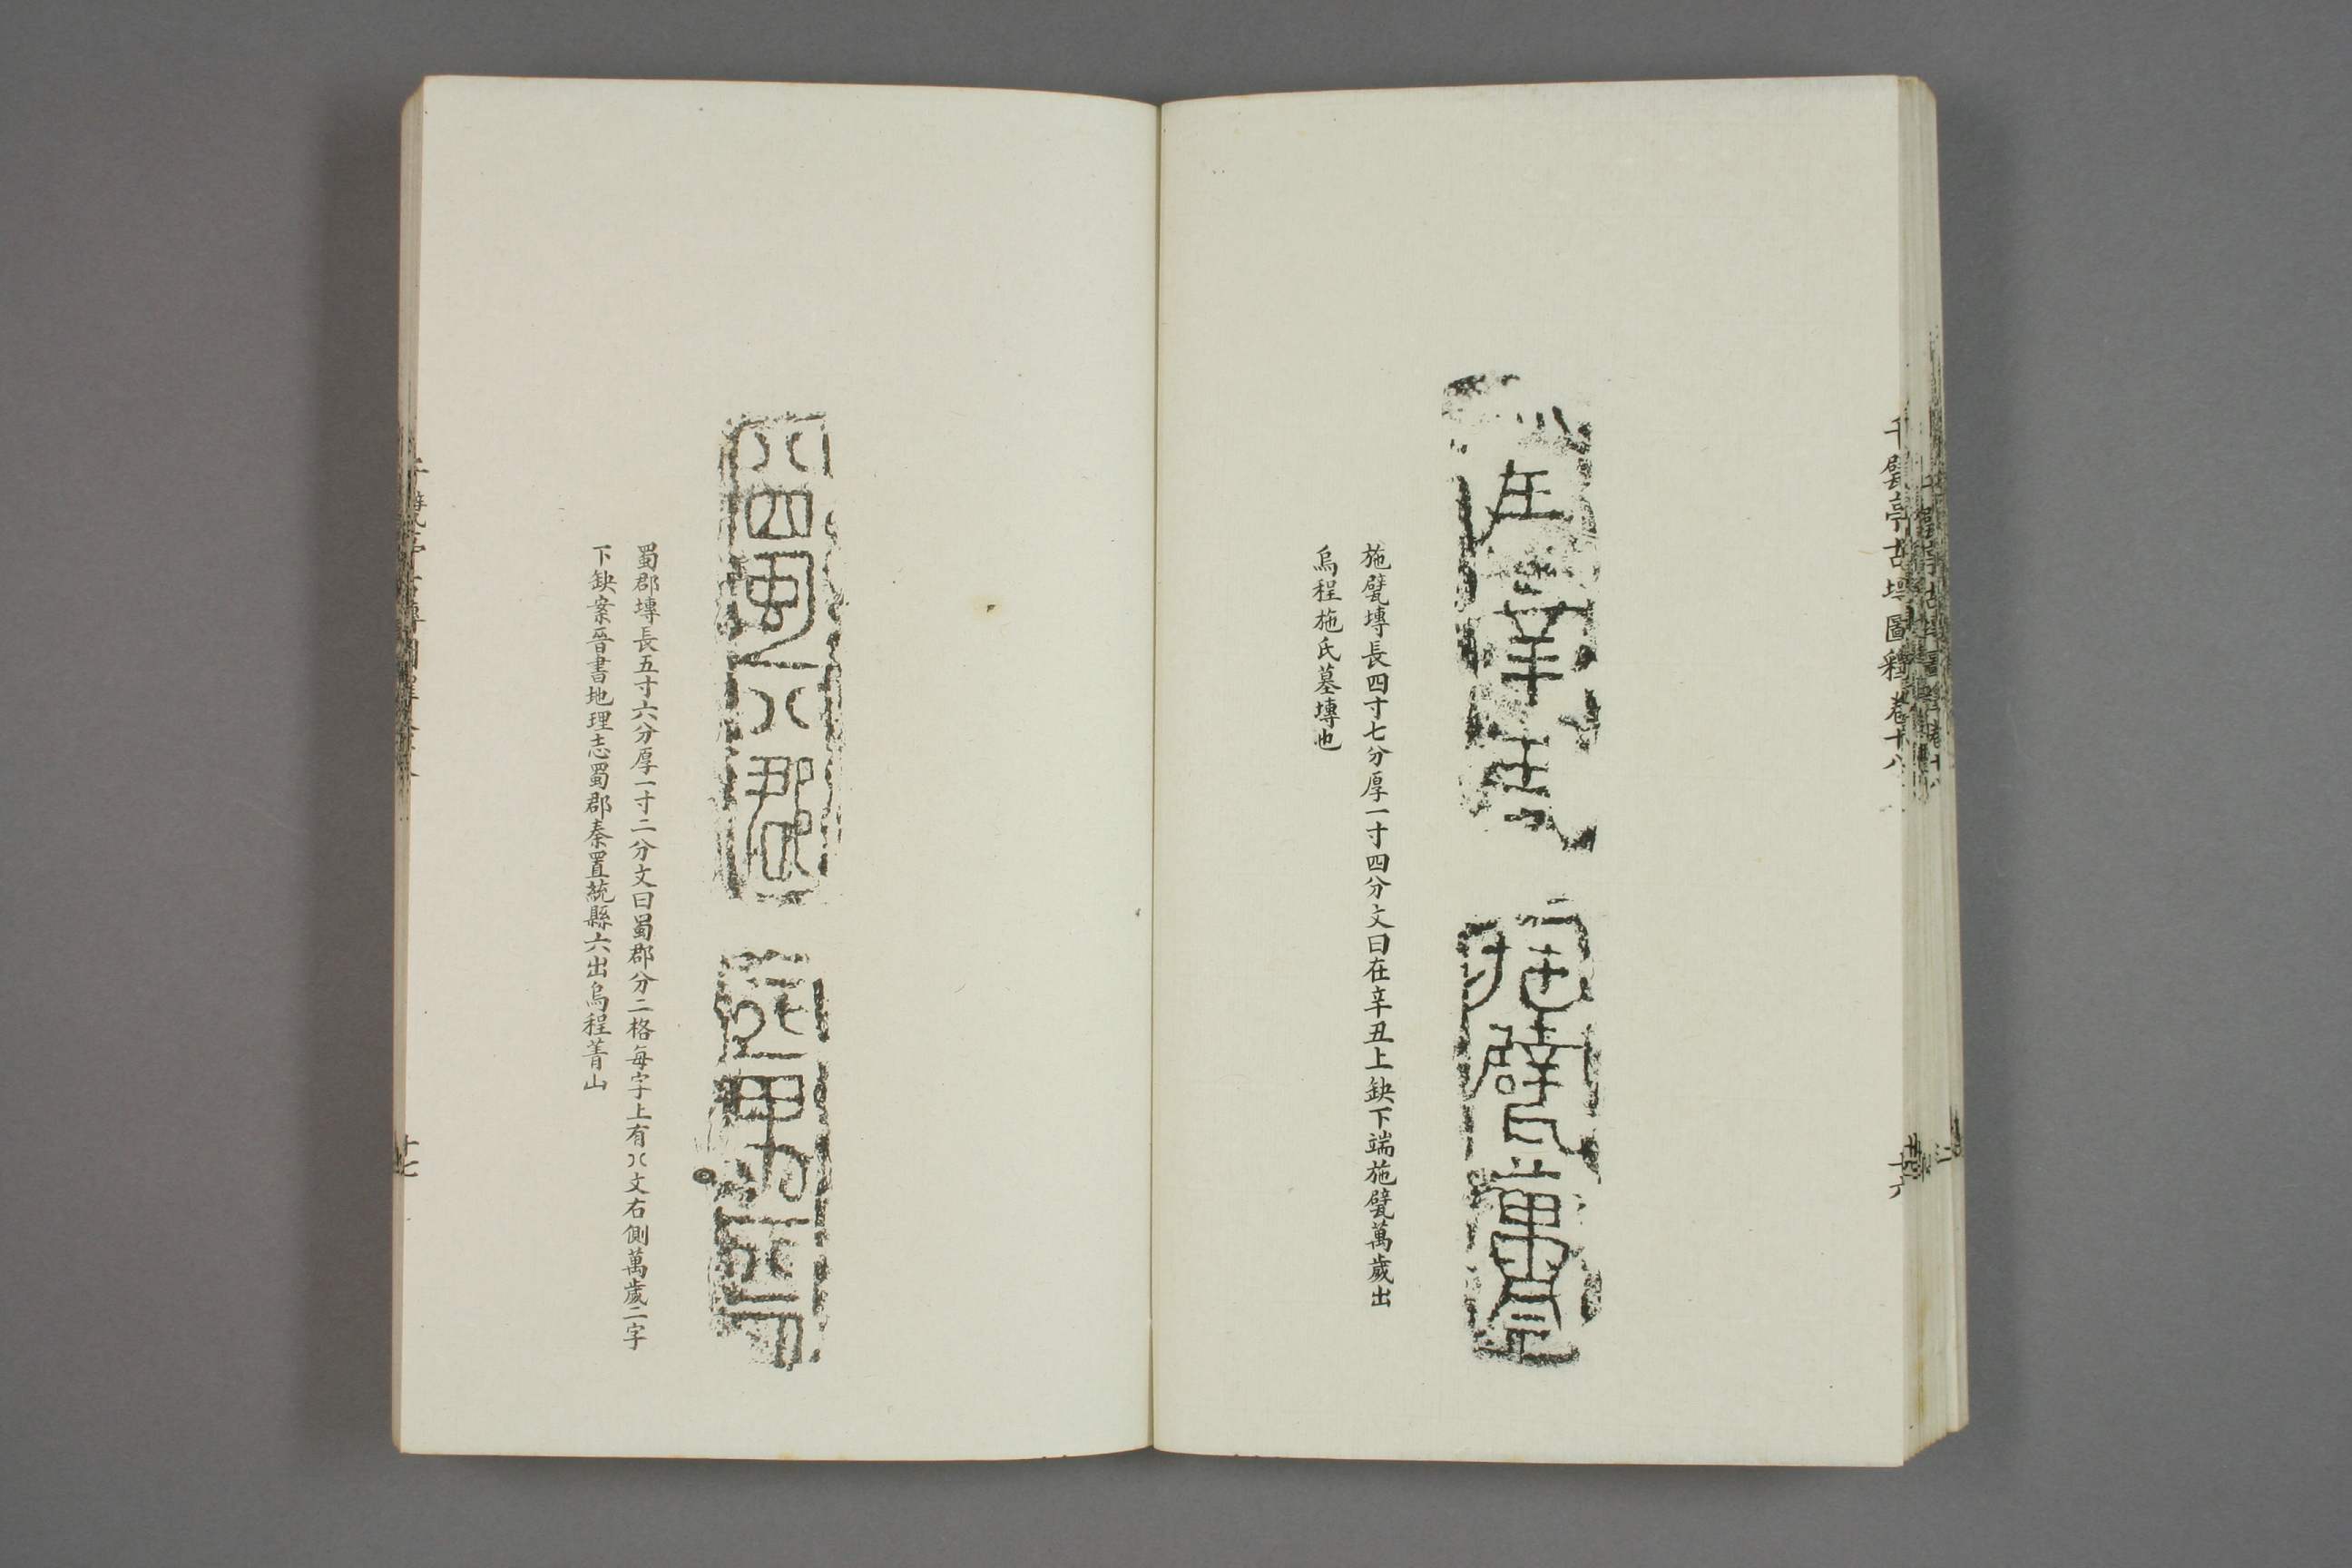 千甓亭古塼圖釋卷十八
十六
在辛丑
施甓萬歲
施甓塼長四寸七分厚一寸四分文曰在辛丑上缺下端施甓萬歲出
烏程施氏墓塼也
蜀郡
蜀郡塼長五寸六分厚一寸二分文曰蜀郡分二格每字上有八文右側萬歲二字
下缺案晉書地理志蜀郡秦置統縣六出烏程菁山
十七